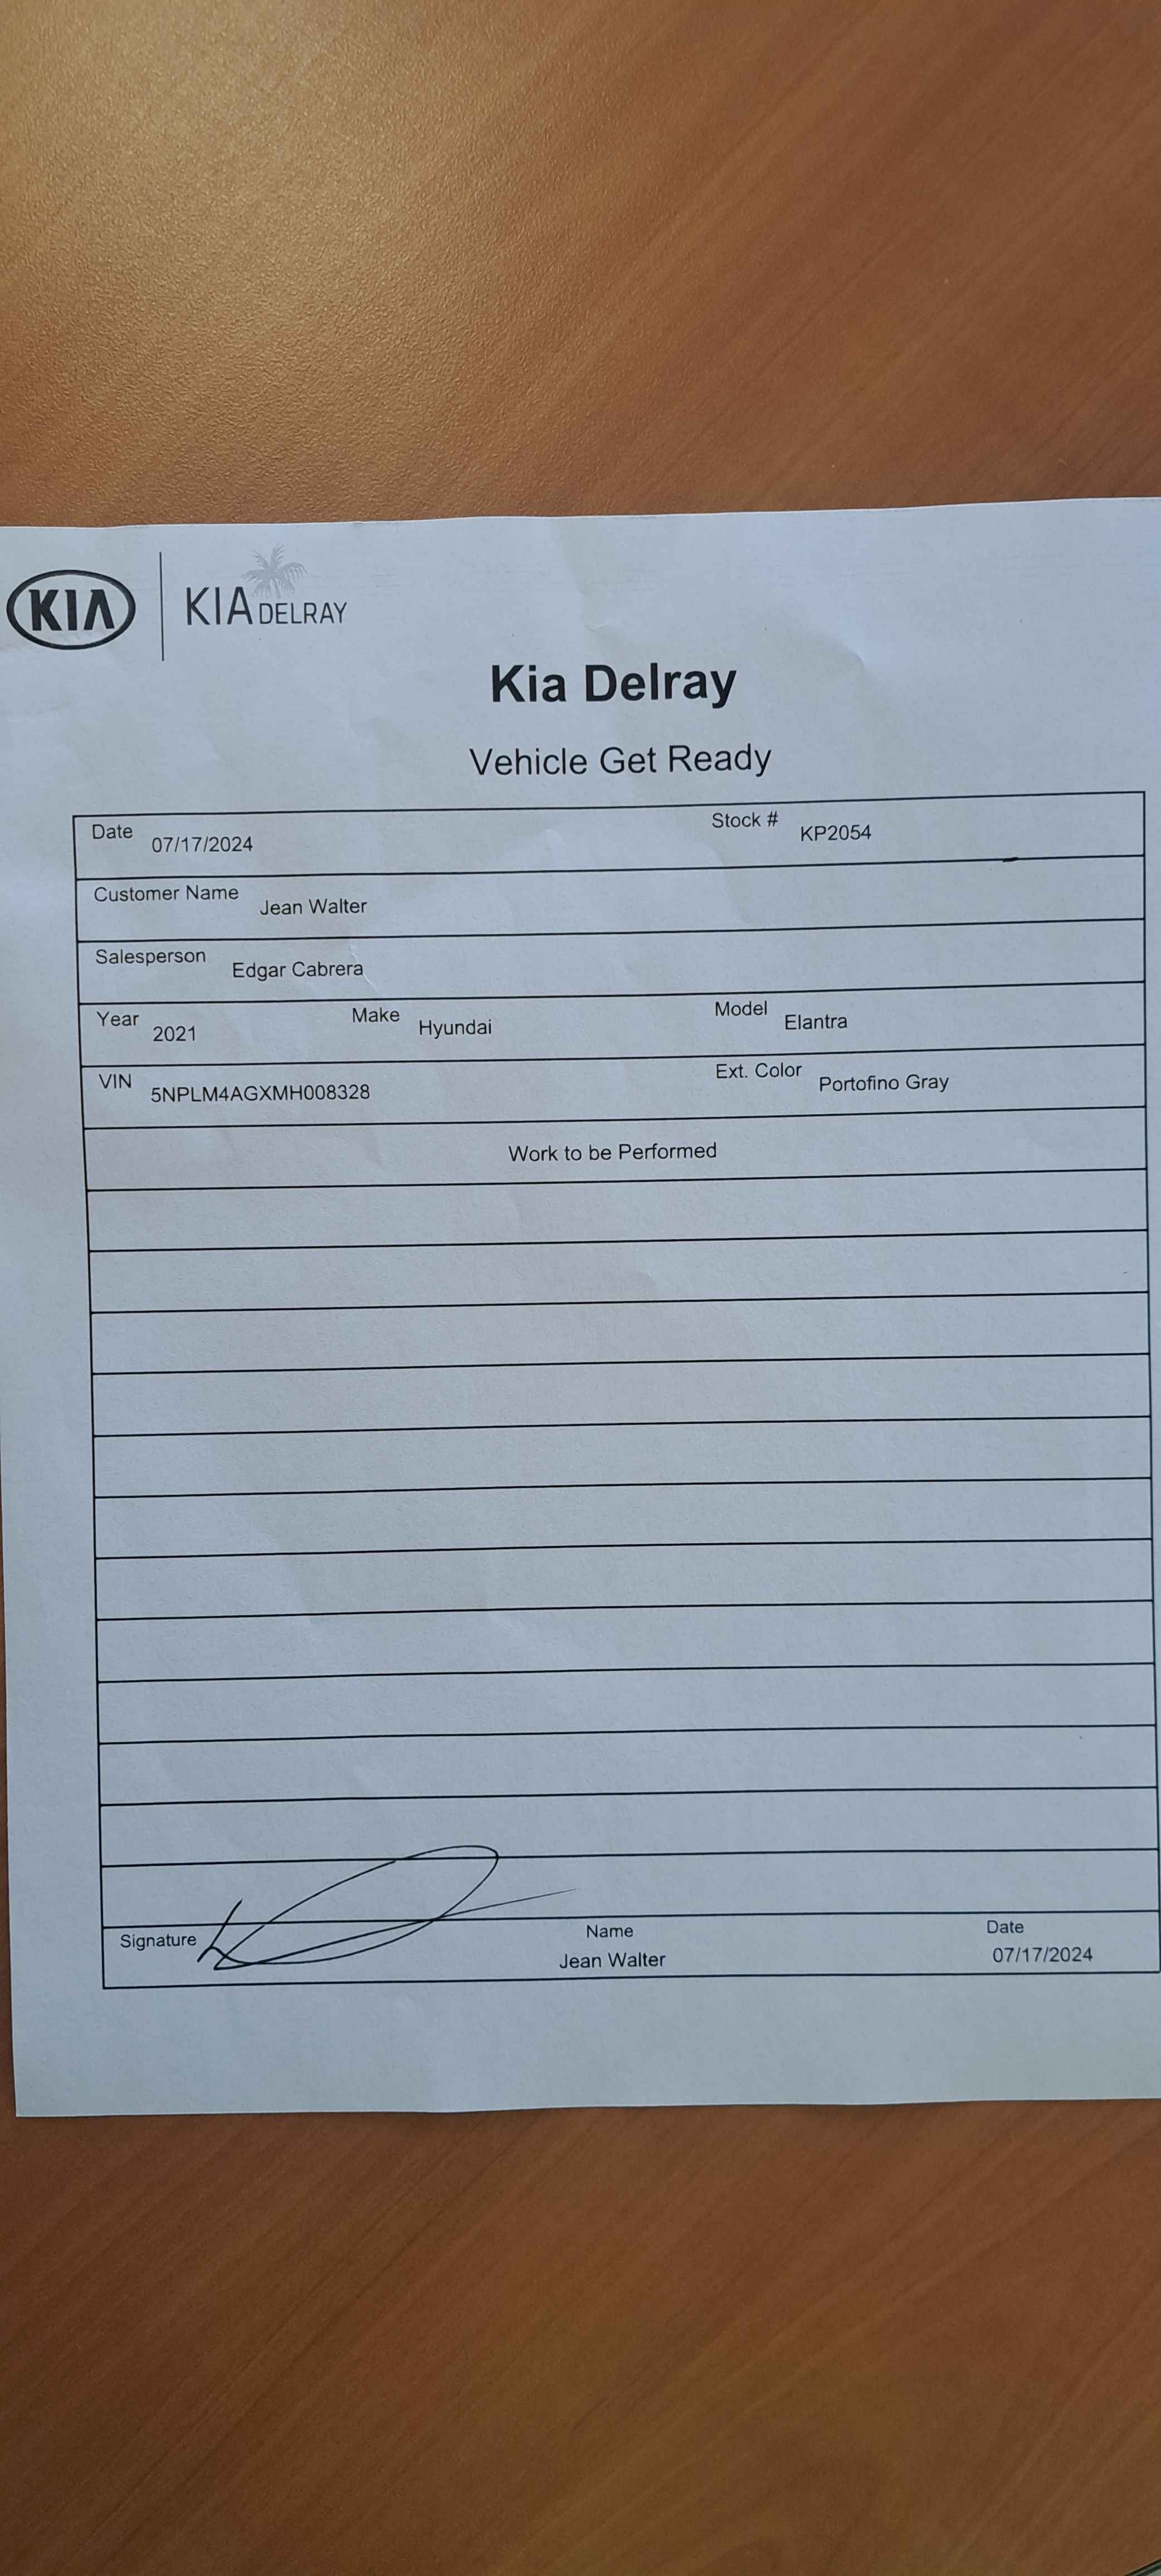 KIA KIA DELRAY
Kia Delray
Vehicle Get Ready
Date 07/17/2024 Stock # KP2054
Customer Name Jean Walter
Salesperson Edgar Cabrera
Year 2021 Make Hyundai Model Elantra
VIN 5NPLM4AGXMH008328 Ext. Color Portofino Gray
Work to be Performed
Signature Name Date
Jean Walter 07/17/2024